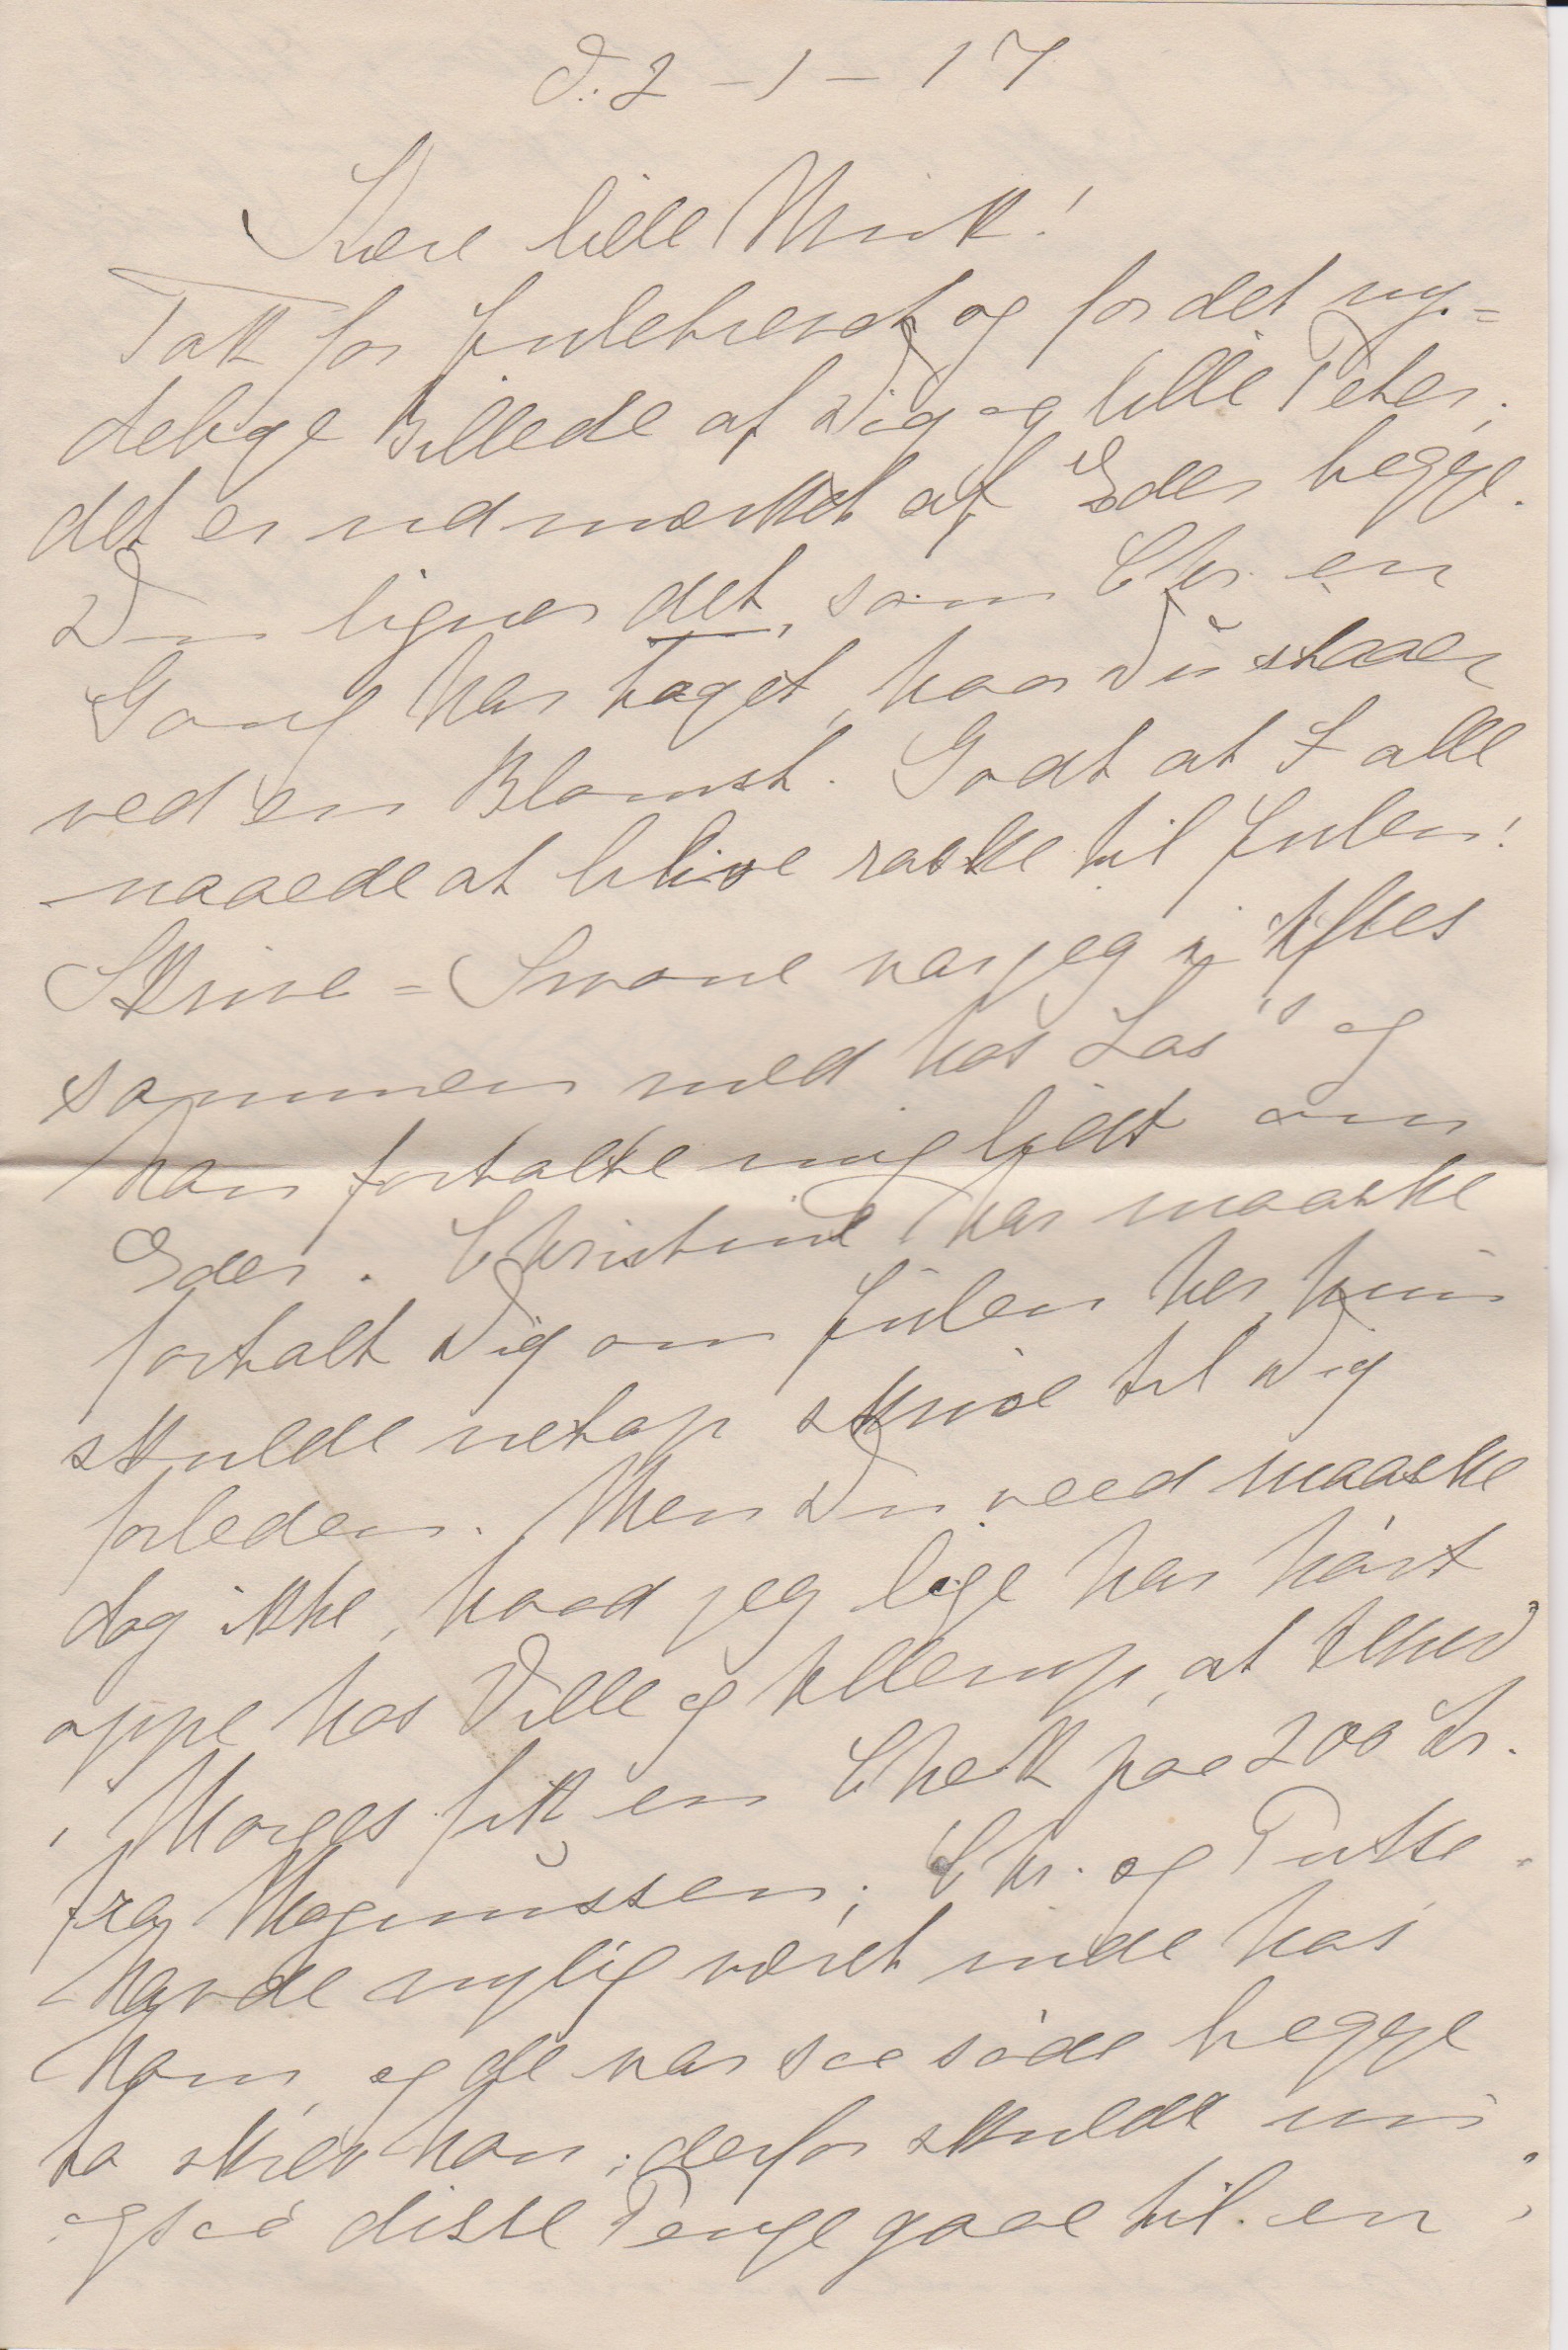 D. 2 – 1 – 17
Kære lille Muk!
Tak for Julebrevet og for det ny=
delige Billede af Dig og lille Peter,
det er udmærket af Eder begge.
Du ligner det, som Chr. en
Gang har taget, hvor Du staaer
ved en Blomst. Godt at I alle
naaede at blive raske til Julen!
Skrive = Svane var jeg i Aftes
sammen med hos Las's og
han fortalte mig lidt om
Eder. Christine har maaske
fortalt Dig om Julen her, hun
skulde netop skrive til Dig
forleden. Men Du veed maaske
dog ikke, hvad jeg lige har hørt
oppe hos Ville og Ellerup, at
i Morges fik en Chek paa 200 Kr.
fra Magnussen; Chr. og Putte
havde nylig været inde hos
ham, og de var saa søde begge
to skrev han; derfor skulde nu
ogsaa disse Penge gaae til en